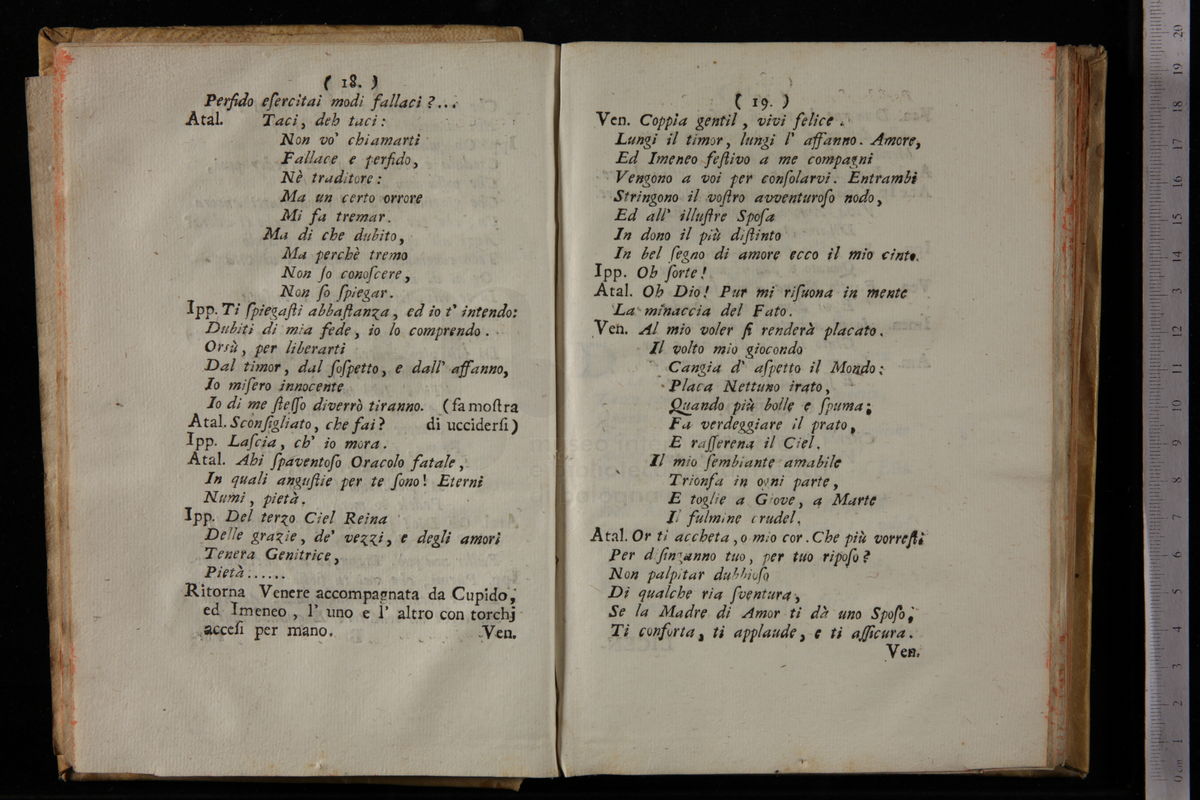 ( 18. )
Perfido eſercitai modi fallaci ?...
Atal. Taci, deh taci:
Non vo' chiamarti
Fallace e perfido,
Nè traditore:
Ma un certo orrore
Mi fa tremar.
Ma di che dubito,
Ma perchè tremo
Non ſo conoſcere,
Non ſo ſpiegar.
Ipp. Ti ſpiegaſti abbaſtanza, ed io t' intendo:
Dubiti di mia fede, io lo comprendo.
Orsù, per liberarti
Dal timor, dal ſoſpetto, e dall' affanno,
Io miſero innocente
Io di me ſteſſo diverrò tiranno. (fa moſtra
Atal. Sconſigliato, che fai? di ucciderſi)
Ipp. Laſcia, ch' io mora.
Atal. Ahi ſpaventoſo Oracolo fatale,
In quali anguſtie per te ſono! Eterni
Numi, pietà.
Ipp. Del terzo Ciel Reina
Delle grazie, de' vezzi, e degli amori
Tenera Genitrice,
Pietà......
Ritorna Venere accompagnata da Cupido,
ed Imeneo, l' uno e l' altro con torchj
acceſi per mano. Ven.
( 19. )
Ven. Coppia gentil, vivi felice.
Lungi il timor, lungi l' affanno. Amore,
Ed Imeneo feſtivo a me compagni
Vengono a voi per conſolarvi. Entrambi
Stringono il voſtro avventuroſo nodo,
Ed all' illuſtre Spoſa
In dono il più diſtinto
In bel ſegno di amore ecco il mio cinto.
Ipp. Oh ſorte!
Atal. Oh Dio! Pur mi riſuona in mente
La minaccia del Fato.
Ven. Al mio voler ſi renderà placato.
Il volto mio giocondo
Cangia d' aſpetto il Mondo:
Placa Nettuno irato,
Quando più bolle e ſpuma;
Fa verdeggiare il prato,
E raſſerena il Ciel.
Il mio ſembiante amabile
Trionfa in ogni parte,
E toglie a Giove, a Marte
Il fulmine crudel.
Atal. Or ti accheta, o mio cor. Che più vorreſti
Per diſinganno tuo, per tuo ripoſo?
Non palpitar dubbioſo
Di qualche ria ſventura,
Se la Madre di Amor ti dà uno Spoſo,
Ti conforta, ti applaude, e ti aſſicura.
Ven.